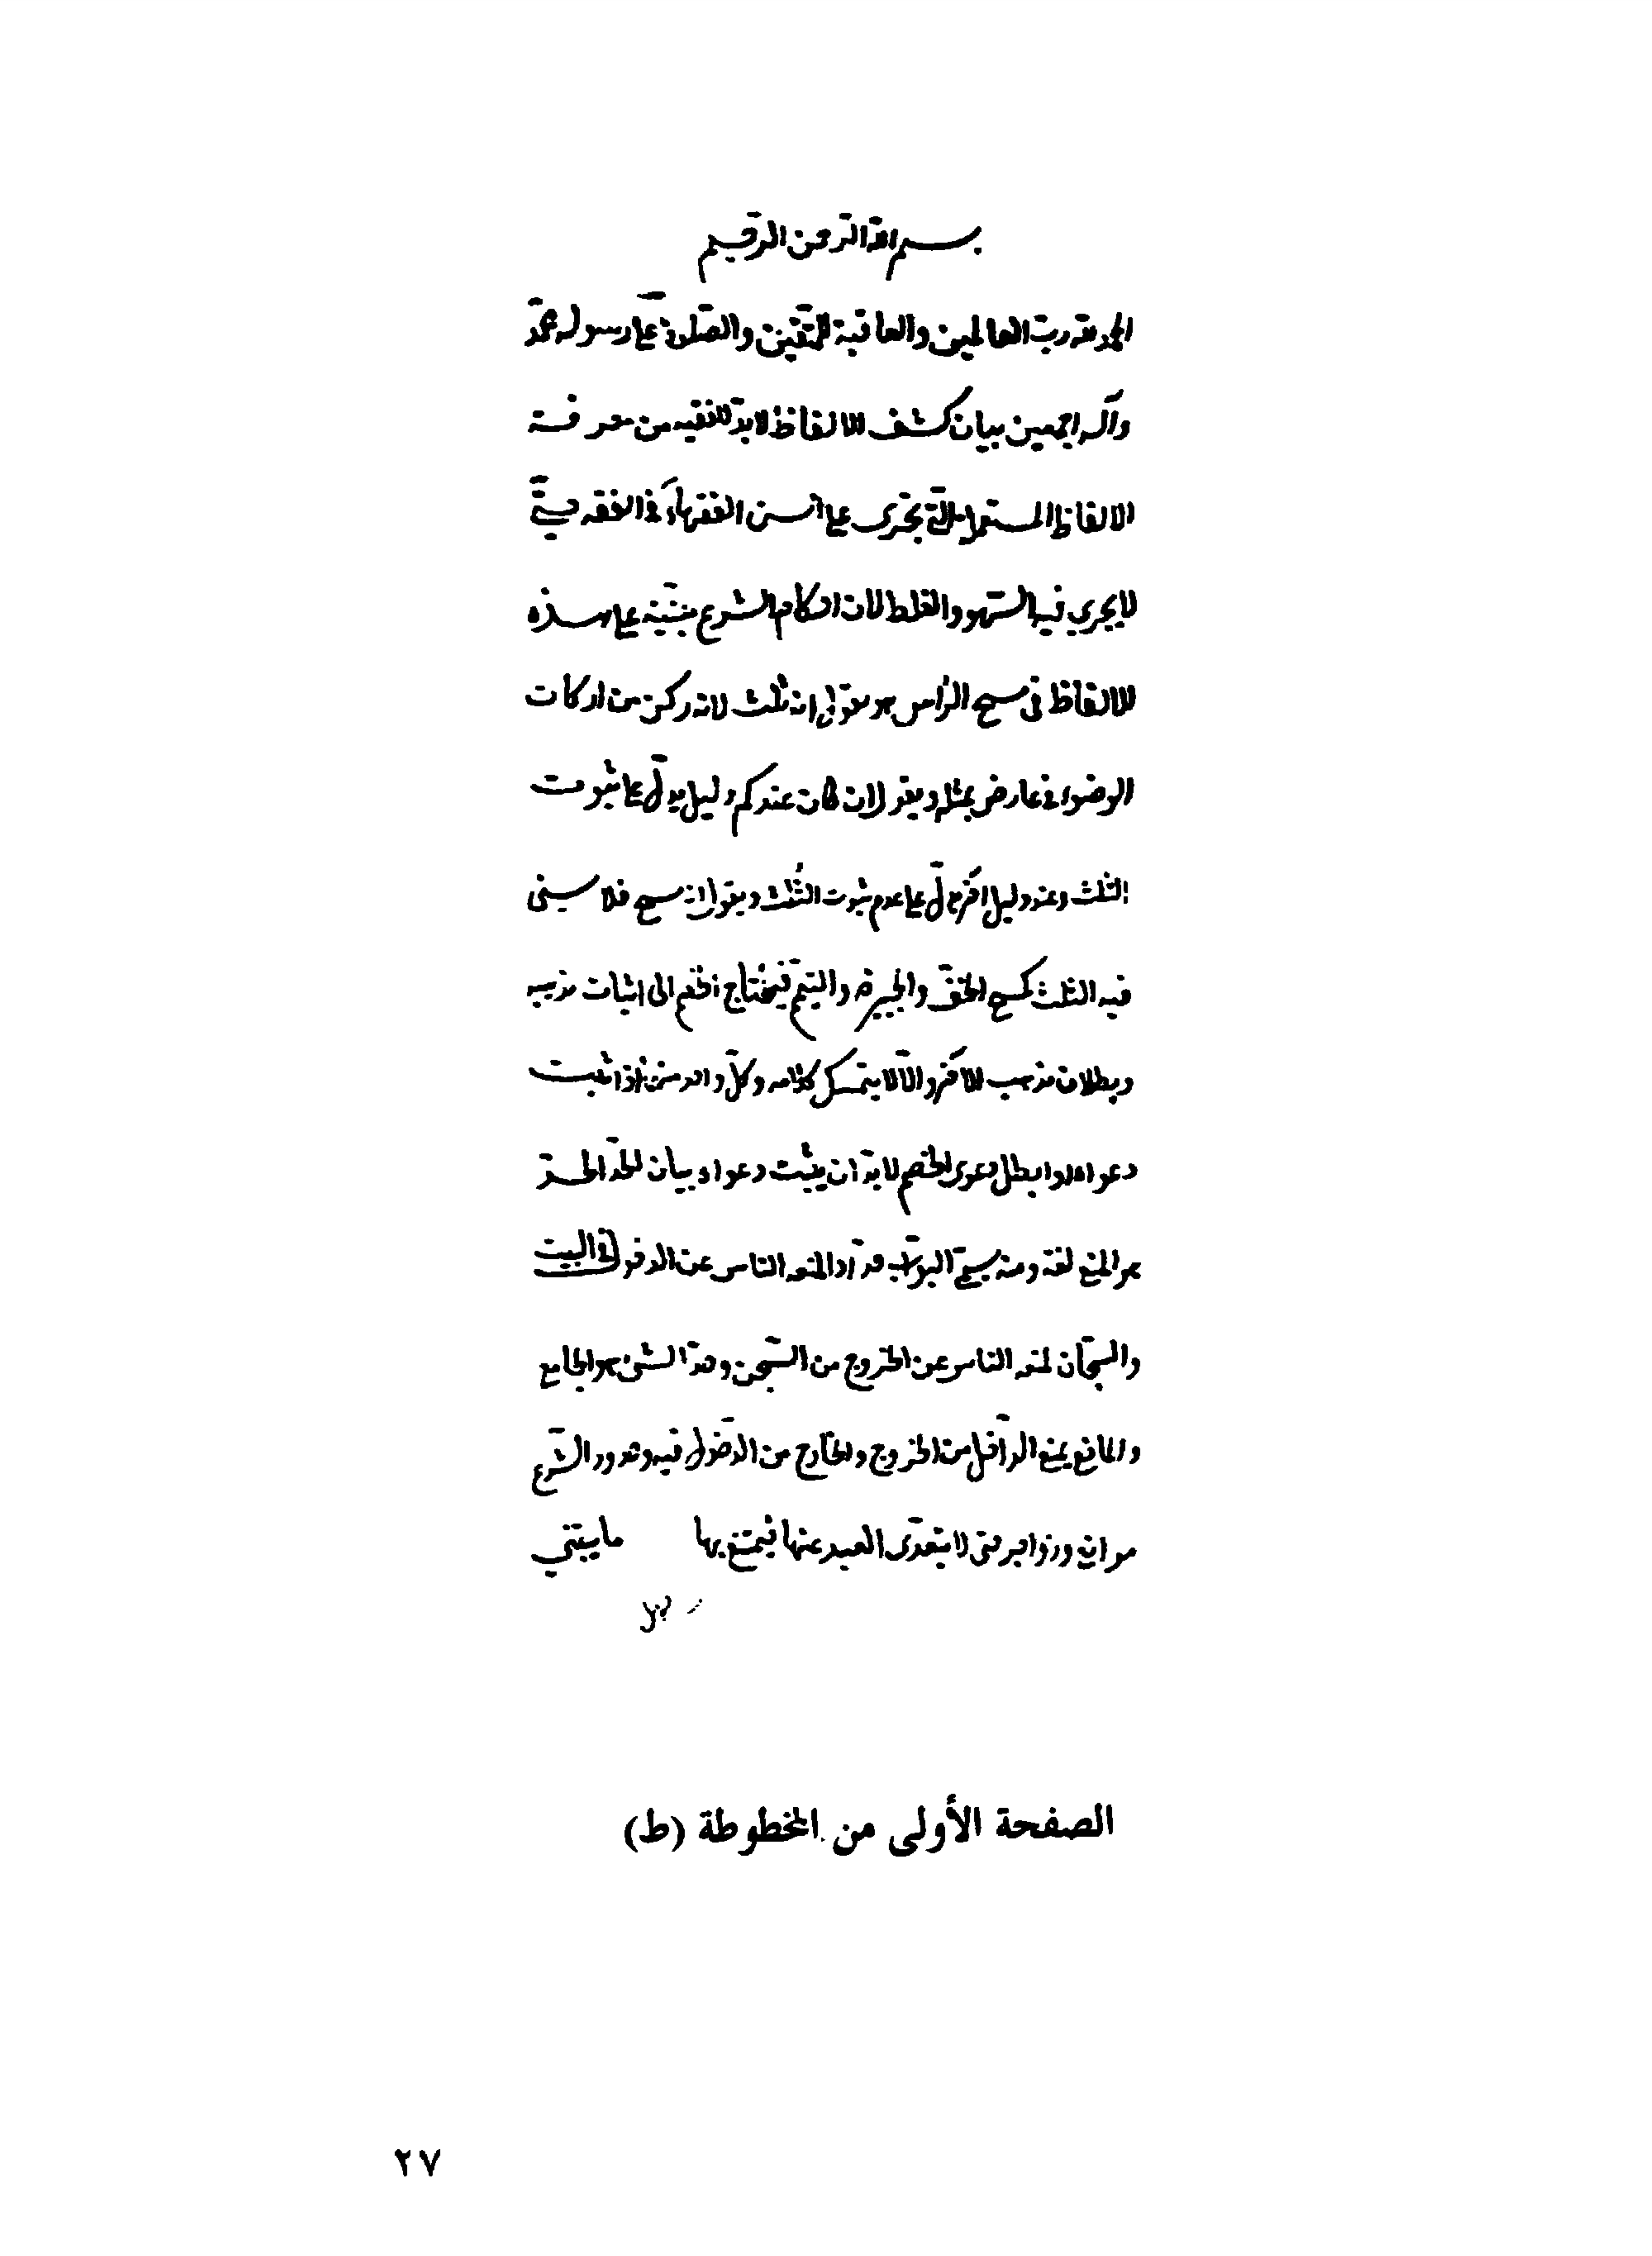 بسم الله الرحمن الرحيم
الحمد لله رب العالمين والعاقبة للمتقين والصلوة على رسوله محمد
وآله اجمعين بيان كشف الالفاظ لابد للفقيه من معرفة
الالفاظ المستعملة التي تجرى على السن الفقهاء في الفقه حتى
لا يجرى فيه السهو والغلط لان احكام الشرع مبنية على هذه
الالفاظ في مسح الرأس هو يقول انه ثلث لانه ركن من اركان
الوضوء فعارض بمثله ويقول ان كان عندكم دليل يدل على ثبوت
الثلث وعند دليل اخر يدل على عدم ثبوت الثلث ويقول انه مسح فلا يسنى
فيه الثلث كمسح الخف والجبيرة والتيمم فيحتاج الخصم الى اثبات مذهبه
وبطلان مذهب الاخر والا لا يتمسك كلامه وكل واحد منهما اذا اثبت
دعواه او ابطل دعوى الخصم لابد ان يثبت دعواه بيان الحد الحد
هو المنع لغة ومنه سمى البواب حدادا لمنعه الناس عن الدخول في البيت
والسجان لمنعه الناس عن الخروج من السجن وحد الشئ هو الجامع
والمانع يمنع الداخل من الخروج والخارج من الدخول فيه وحدود الشرع
موانع وزواجر حتى لا يتعدى العبد عنها فيمتنع بها ما يبتنى
الصفحة الأولى من المخطوطة (ط)
٢٧